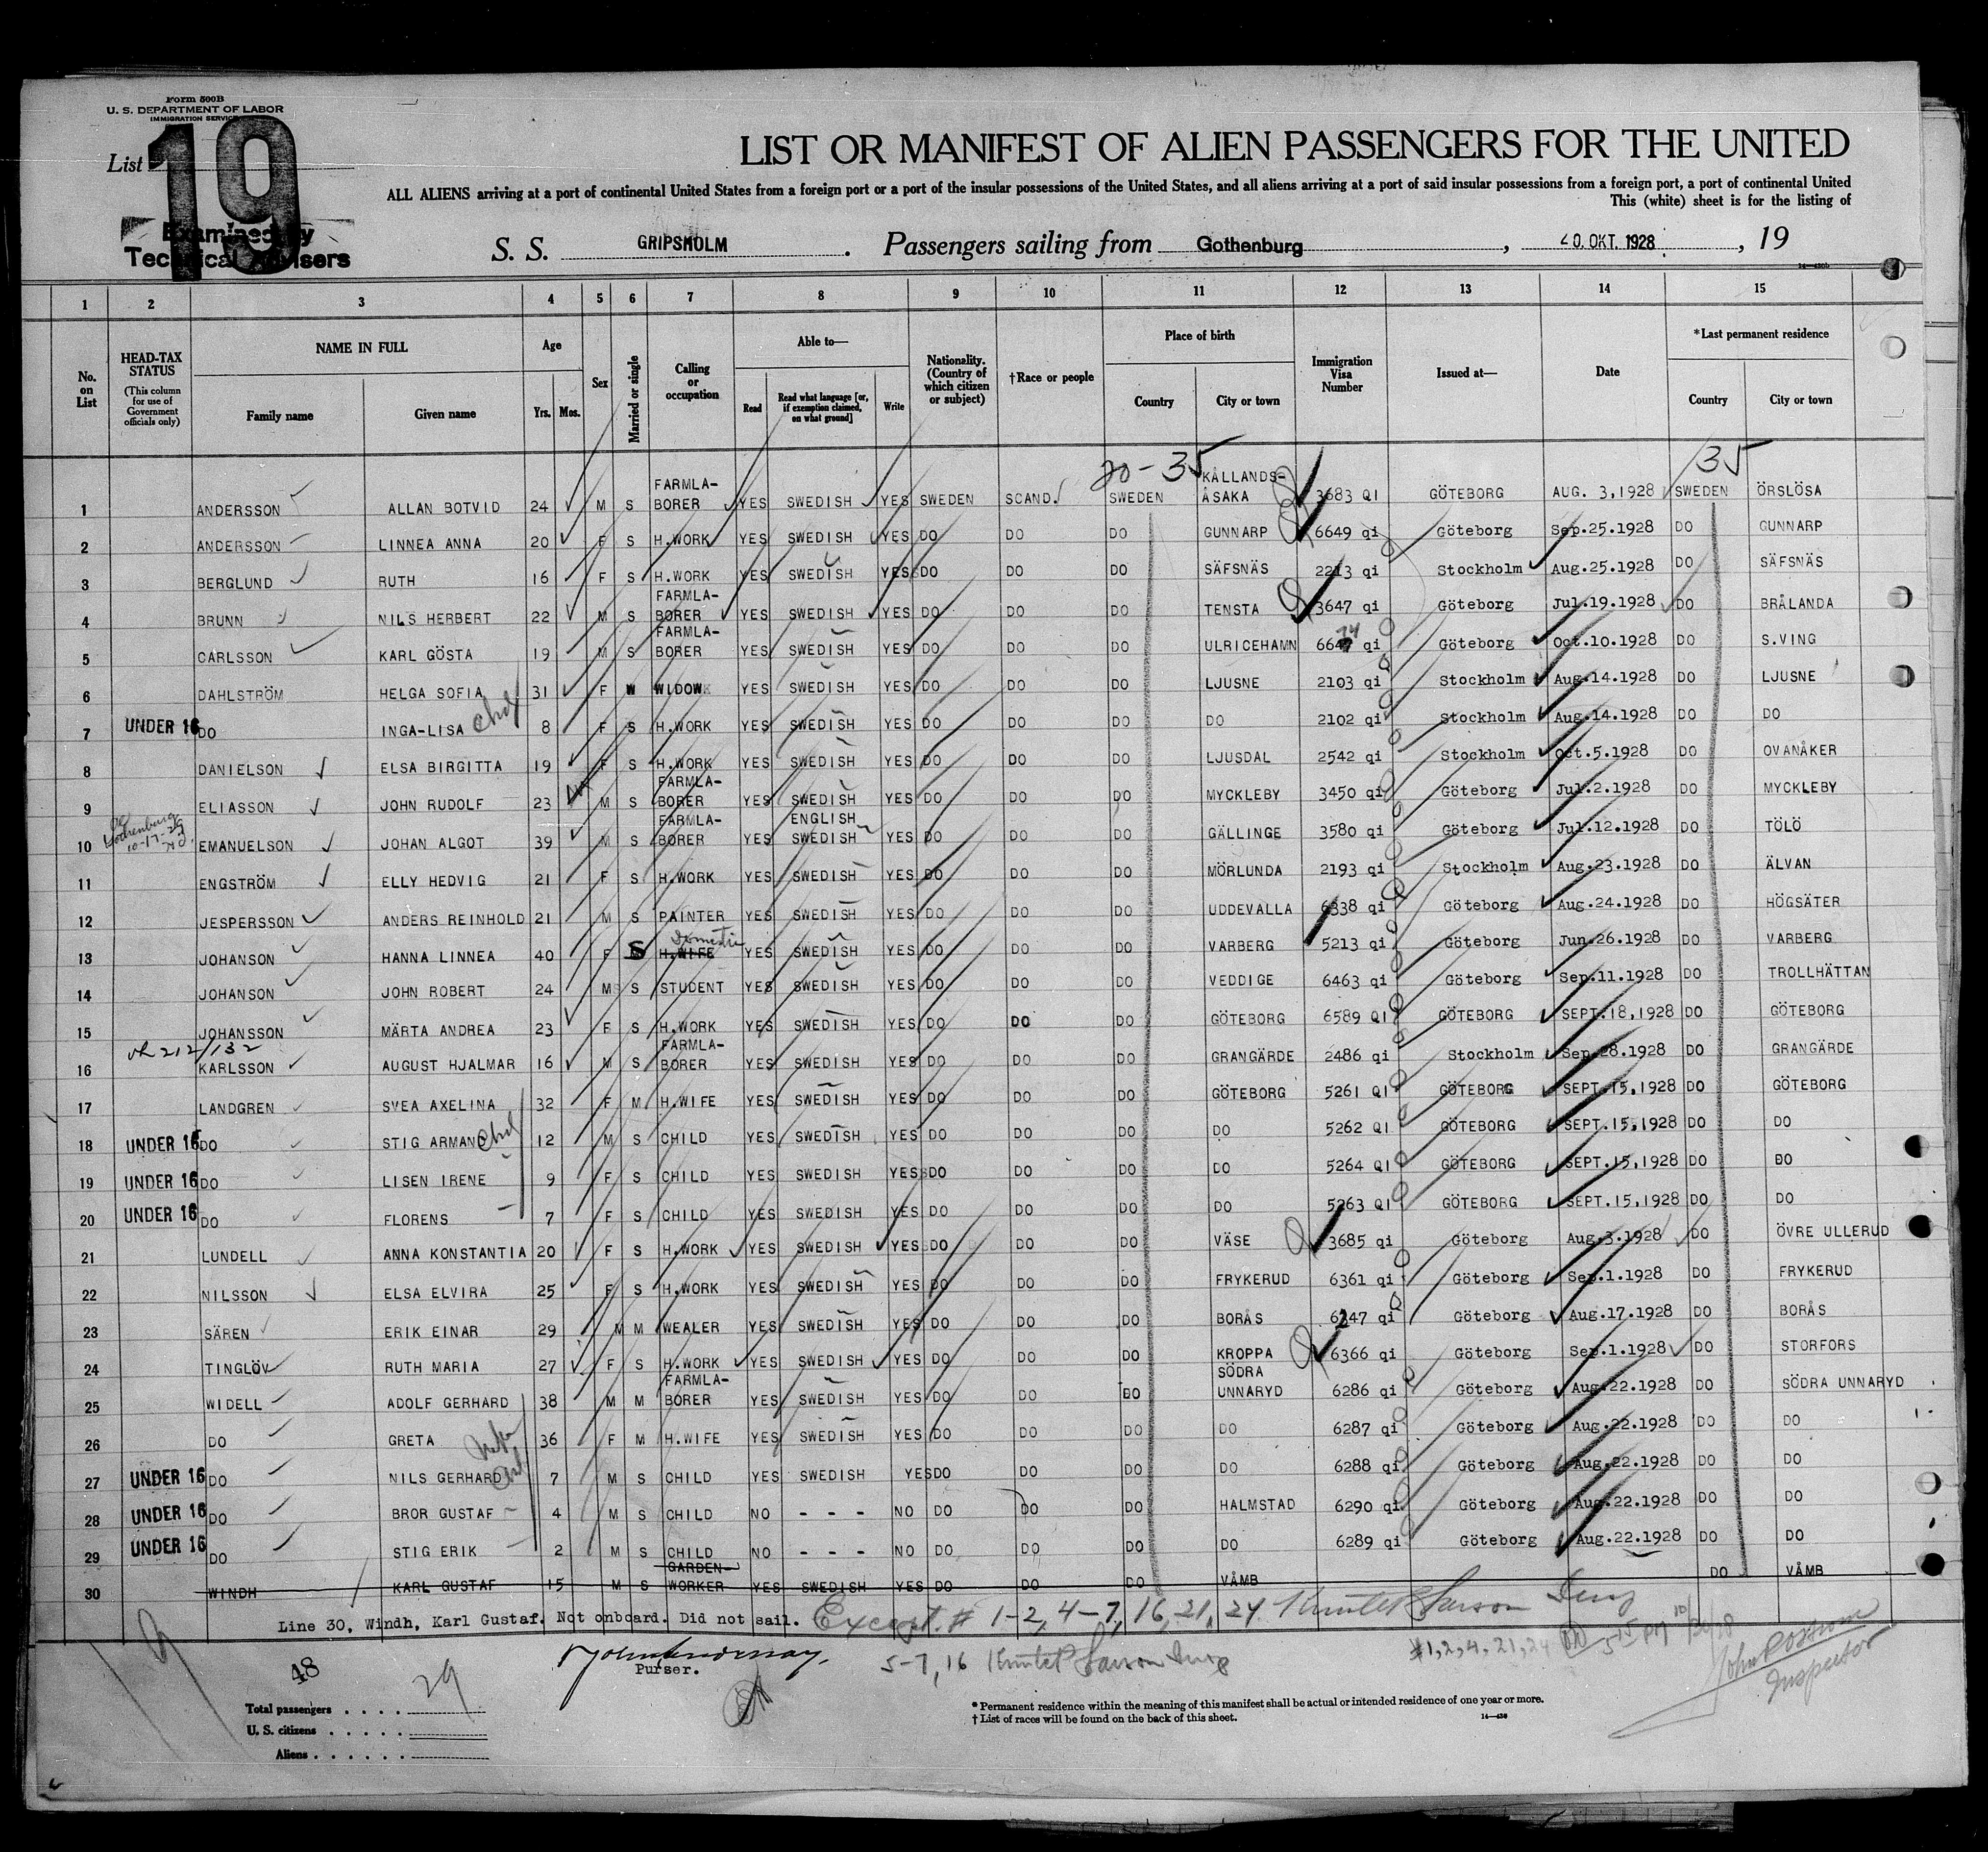 Form 500B
U. S. DEPARTMENT OF LABOR
IMMIGRATION SERVICE
List 19
Examined by
Technical Advisers
LIST OR MANIFEST OF ALIEN PASSENGERS FOR THE UNITED
ALL ALIENS arriving at a port of continental United States from a foreign port or a port of the insular possessions of the United States, and all aliens arriving at a port of said insular possessions from a foreign port, a port of continental United
This (white) sheet is for the listing of
S. S. GRIPSHOLM. Passengers sailing from Gothenburg, 20. OKT. 1928, 19
1 2 3 4 5 6 7 8 9 10 11 12 13 14 15
No. on List
HEAD-TAX STATUS (This column for use of Government officials only)
NAME IN FULL Family name Given name
Age Yrs. Mos.
Sex
Married or single
Calling or occupation
Able to— Read Read what language [or, if exemption claimed, on what ground] Write
Nationality. (Country of which citizen or subject)
†Race or people
Place of birth Country City or town
Immigration Visa Number
Issued at—
Date
*Last permanent residence Country City or town
20-35 35
1 ANDERSSON ALLAN BOTVID 24 M S FARMLA-BORER YES SWEDISH YES SWEDEN SCAND. SWEDEN KÅLLANDS-ÅSAKA 3683 QI GÖTEBORG AUG. 3,1928 SWEDEN ÖRSLÖSA
2 ANDERSSON LINNEA ANNA 20 F S H.WORK YES SWEDISH YES DO DO DO GUNNARP 6649 qi Göteborg Sep.25.1928 DO GUNNARP
3 BERGLUND RUTH 16 F S H.WORK YES SWEDISH YES DO DO DO SÄFSNÄS 2213 qi Stockholm Aug.25.1928 DO SÄFSNÄS
4 BRUNN NILS HERBERT 22 M S FARMLA-BORER YES SWEDISH YES DO DO DO TENSTA 3647 qi Göteborg Jul.19.1928 DO BRÅLANDA
5 CARLSSON KARL GÖSTA 19 M S FARMLA-BORER YES SWEDISH YES DO DO DO ULRICEHAMN 6647 74 qi Göteborg Oct.10.1928 DO S.VING
6 DAHLSTRÖM HELGA SOFIA 31 F W WIDOW YES SWEDISH YES DO DO DO LJUSNE 2103 qi Stockholm Aug.14.1928 DO LJUSNE
7 UNDER 16 DO INGA-LISA chd 8 F S H.WORK YES SWEDISH YES DO DO DO DO 2102 qi Stockholm Aug.14.1928 DO DO
8 DANIELSON ELSA BIRGITTA 19 F S H.WORK YES SWEDISH YES DO DO DO LJUSDAL 2542 qi Stockholm Oct.5.1928 DO OVANÅKER
9 ELIASSON JOHN RUDOLF 23 M S FARMLA-BORER YES SWEDISH YES DO DO DO MYCKLEBY 3450 qi Göteborg Jul.2.1928 DO MYCKLEBY
10 EMANUELSON JOHAN ALGOT 39 M S FARMLA-BORER YES ENGLISH SWEDISH YES DO DO DO GÄLLINGE 3580 qi Göteborg Jul.12.1928 DO TÖLÖ
11 ENGSTRÖM ELLY HEDVIG 21 F S H.WORK YES SWEDISH YES DO DO DO MÖRLUNDA 2193 qi Stockholm Aug.23.1928 DO ÄLVAN
12 JESPERSSON ANDERS REINHOLD 21 M S PAINTER YES SWEDISH YES DO DO DO UDDEVALLA 6338 qi Göteborg Aug.24.1928 DO HÖGSÄTER
13 JOHANSON HANNA LINNEA 40 F S Domestic H.WIFE YES SWEDISH YES DO DO DO VARBERG 5213 qi Göteborg Jun.26.1928 DO VARBERG
14 JOHANSON JOHN ROBERT 24 M S STUDENT YES SWEDISH YES DO DO DO VEDDIGE 6463 qi Göteborg Sep.11.1928 DO TROLLHÄTTAN
15 JOHANSSON MÄRTA ANDREA 23 F S H.WORK YES SWEDISH YES DO DO DO GÖTEBORG 6589 QI GÖTEBORG SEPT.18,1928 DO GÖTEBORG
16 KARLSSON AUGUST HJALMAR 16 M S FARMLA-BORER YES SWEDISH YES DO DO DO GRANGÄRDE 2486 qi Stockholm Sep.28.1928 DO GRANGÄRDE
17 LANDGREN SVEA AXELINA 32 F M H.WIFE YES SWEDISH YES DO DO DO GÖTEBORG 5261 QI GÖTEBORG SEPT.15,1928 DO GÖTEBORG
18 UNDER 16 DO STIG ARMAN chd 12 M S CHILD YES SWEDISH YES DO DO DO DO 5262 QI GÖTEBORG SEPT.15,1928 DO DO
19 UNDER 16 DO LISEN IRENE 9 F S CHILD YES SWEDISH YES DO DO DO DO 5264 QI GÖTEBORG SEPT.15,1928 DO DO
20 UNDER 16 DO FLORENS 7 F S CHILD YES SWEDISH YES DO DO DO DO 5263 QI GÖTEBORG SEPT.15,1928 DO DO
21 LUNDELL ANNA KONSTANTIA 20 F S H.WORK YES SWEDISH YES DO DO DO VÄSE 3685 qi Göteborg Aug.3.1928 DO ÖVRE ULLERUD
22 NILSSON ELSA ELVIRA 25 F S H.WORK YES SWEDISH YES DO DO DO FRYKERUD 6361 qi Göteborg Sep.1.1928 DO FRYKERUD
23 SÄREN ERIK EINAR 29 M M WEALER YES SWEDISH YES DO DO DO BORÅS 6247 qi Göteborg Aug.17.1928 DO BORÅS
24 TINGLÖV RUTH MARIA 27 F S H.WORK YES SWEDISH YES DO DO DO KROPPA 6366 qi Göteborg Sep.1.1928 DO STORFORS
25 WIDELL ADOLF GERHARD 38 M M FARMLA-BORER YES SWEDISH YES DO DO DO SÖDRA UNNARYD 6286 qi Göteborg Aug.22.1928 DO SÖDRA UNNARYD
26 DO GRETA 36 F M H.WIFE YES SWEDISH YES DO DO DO DO 6287 qi Göteborg Aug.22.1928 DO DO
27 UNDER 16 DO NILS GERHARD 7 M S CHILD YES SWEDISH YES DO DO DO DO 6288 qi Göteborg Aug.22.1928 DO DO
28 UNDER 16 DO BROR GUSTAF 4 M S CHILD NO - - - NO DO DO DO HALMSTAD 6290 qi Göteborg Aug.22.1928 DO DO
29 UNDER 16 DO STIG ERIK 2 M S CHILD NO - - - NO DO DO DO DO 6289 qi Göteborg Aug.22.1928 DO DO
30 WINDH KARL GUSTAF 15 M S GARDEN-WORKER YES SWEDISH YES DO DO DO VÅMB DO VÅMB
Line 30, Windh, Karl Gustaf. Not onboard. Did not sail. Except # 1-2, 4-7, 16, 21, 24
Purser. 5-7, 16
#1,2,4,21,24
Inspector
48 29
Total passengers
U. S. citizens
Aliens
* Permanent residence within the meaning of this manifest shall be actual or intended residence of one year or more.
† List of races will be found on the back of this sheet.